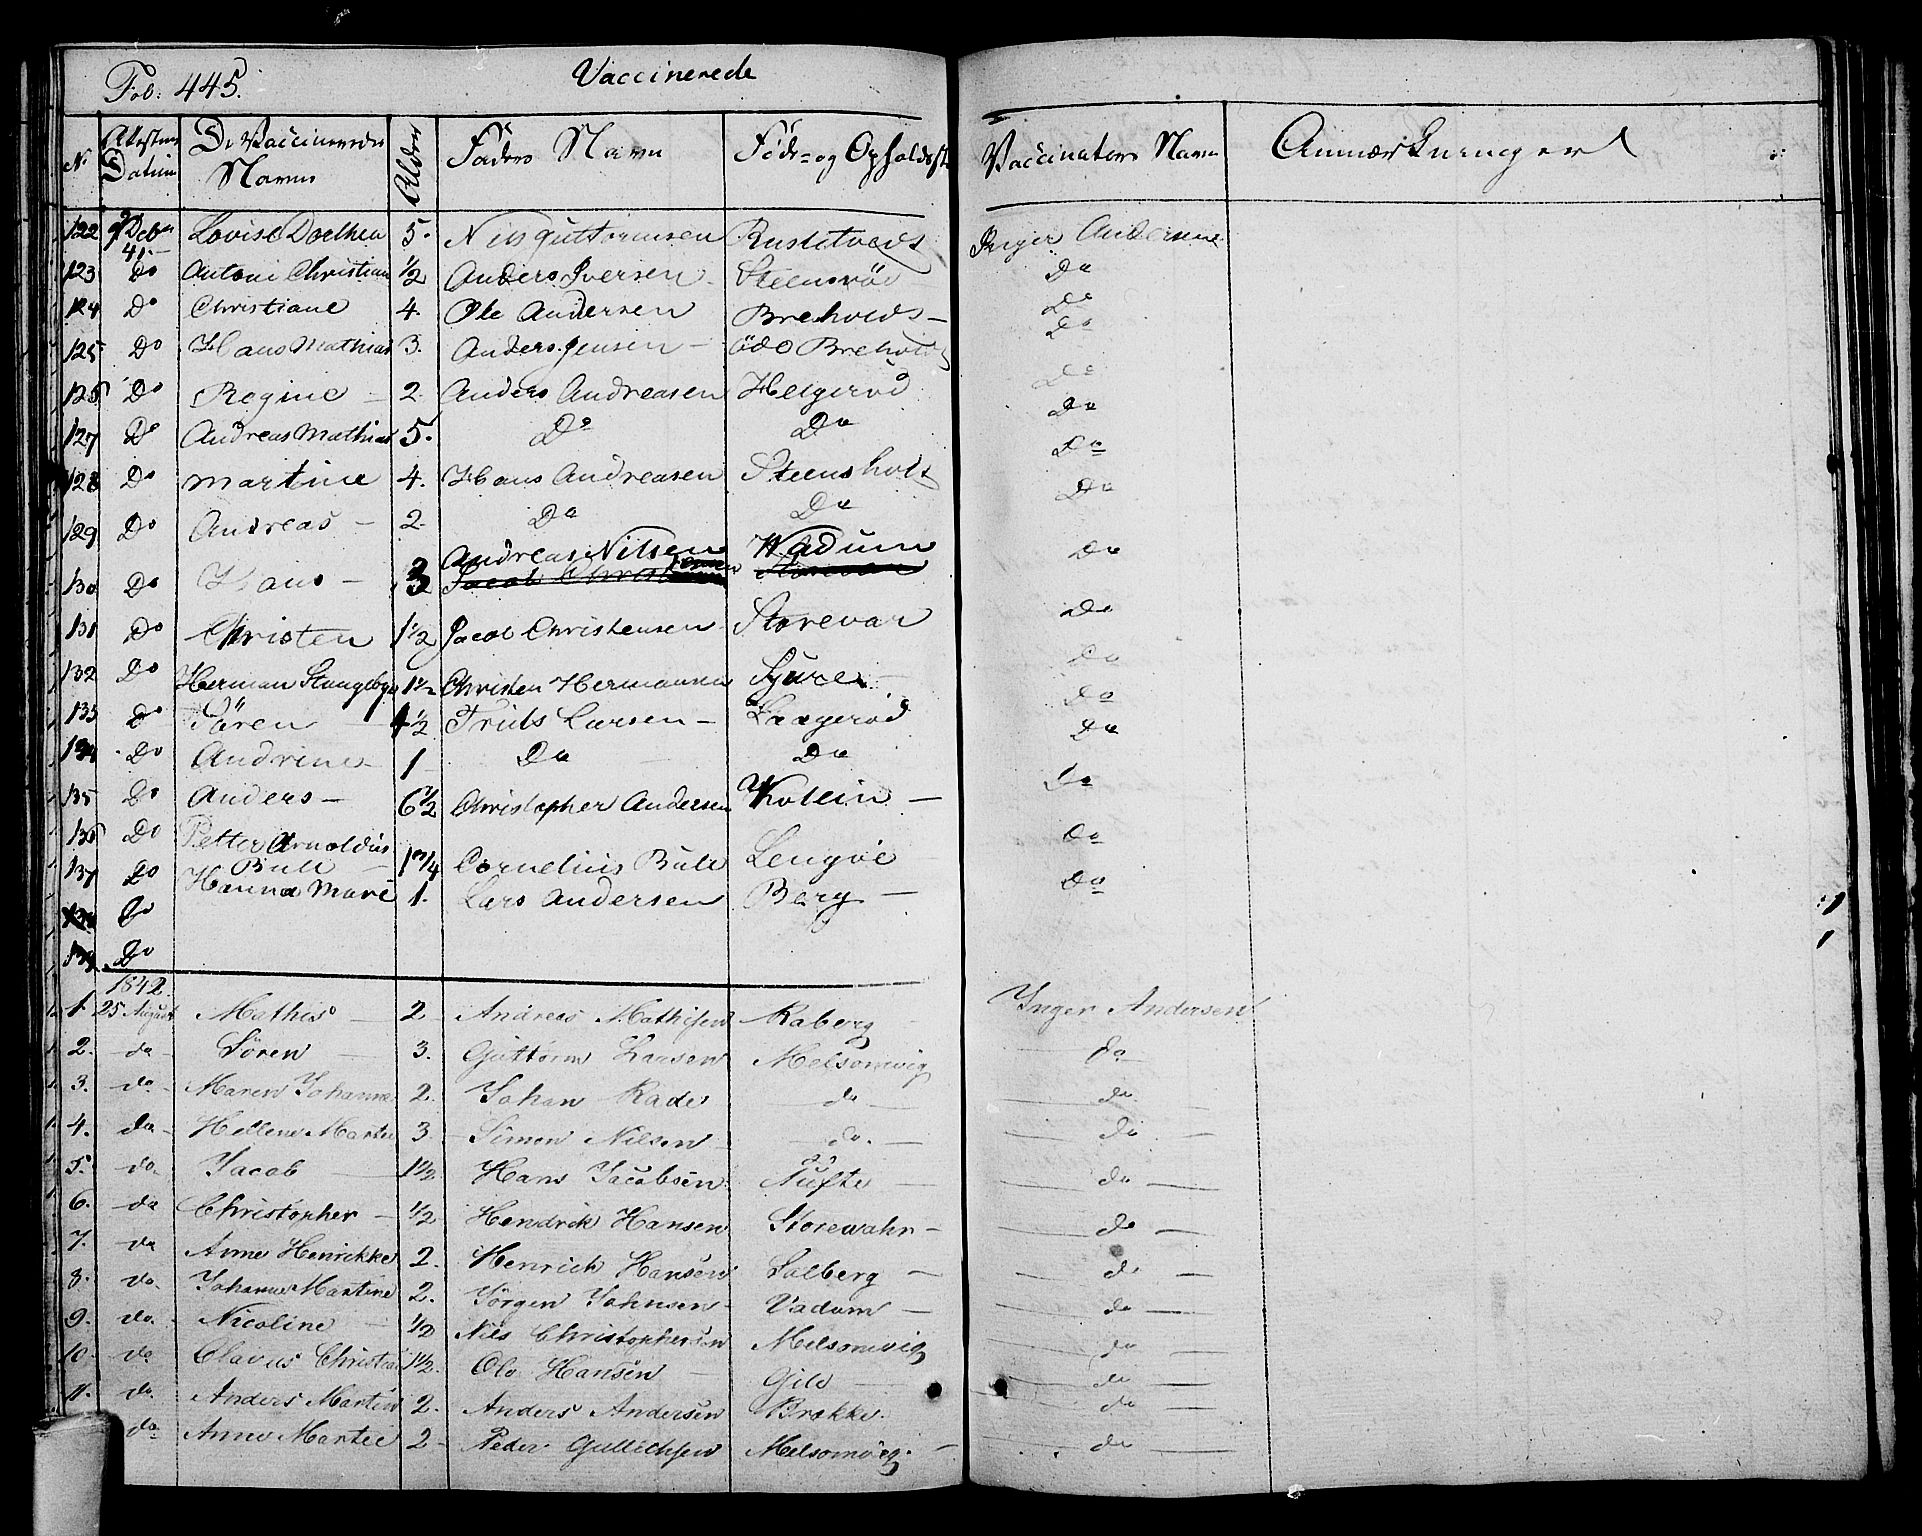 Fol: 445. Vaccinerede
No Attestens Datum De Vaccineredes Navne Alder Faders Navn Føde- og Opholdsst Vaccinateurs Navn Anmærkninger
122 Decbr 41 Lovise Dorthea 5. Nils Guttormsen Inger Andersen
123 Do Antoni Christian 1/2 Anders Iversen Do
124 Do Christiane 4. Ole Andersen Breholds Do
125 Do Hans Mathias 3. Anders Jensen ödo Breholdt Do
126 Do Regine 2. Anders Andreasen Helgeröd Do
127 Do Andreas Mathias 5. Do Do Do
128 Do Martine 4. Hans Andreasen Steensholt Do
129 Do Andreas 2. Do Do Do
130 Do Hans 3 Andreas Nilsen Wadum Do
Jacob Storevar
131 Do Christen 1 1/2 Jacob Christensen Storevar Do
132 Do Herman Stangeby 1 1/2 Christen Hermansen Do
133 Do Sören 4 1/2 Truls Larsen Do
134 Do Andrine 1 Do Do Do
135 Do Anders 6 1/2 Christopher Andersen Do
136 Do Petter Arnoldus Bull 1 3/4 Cornelius Bull Lengöe Do
137 Do Hanna Mari 1. Lars Andersen Berg Do
138 Do
139 Do
1842
1. 25 August Mathis 2 Andreas Mathisen Raberg Inger Andersen
2. do Sören 3. Guttorm Larsen Melsomvig do
3. do Maren Johanna 2. Johan Rade do do
4. do Hellene Marte 3 Simon Nilsen do. do
5. do. Jacob 1 1/2 Hans Jacobsen Tufte do
6. do Christopher 1/2 Hendrik Hansen Storewahr do
7. do Anne Henrikke 2. Henrich Hansen Solberg do
8. do. Johanne Martine 2. Jörgen Johnsen Vadum do
9. do. Nicoline 1/2 Nils Christophersen Melsomvig do
10. do Olavus Christian 1 1/2. Ole Hansen Gile do
11. do. Anders Martin 2. Anders Andersen Brakke. do
do Anne Marte 2 Peder Gullichsen Melsomvig. do